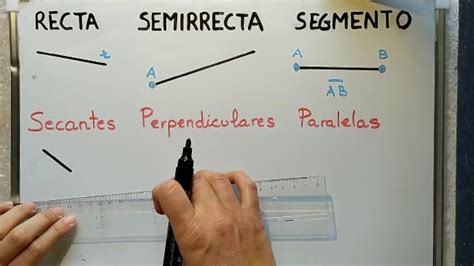 RECTA SEMIRRECTA SEGMENTO
r
A
A B
AB
Secantes Perpendiculares Paralelas